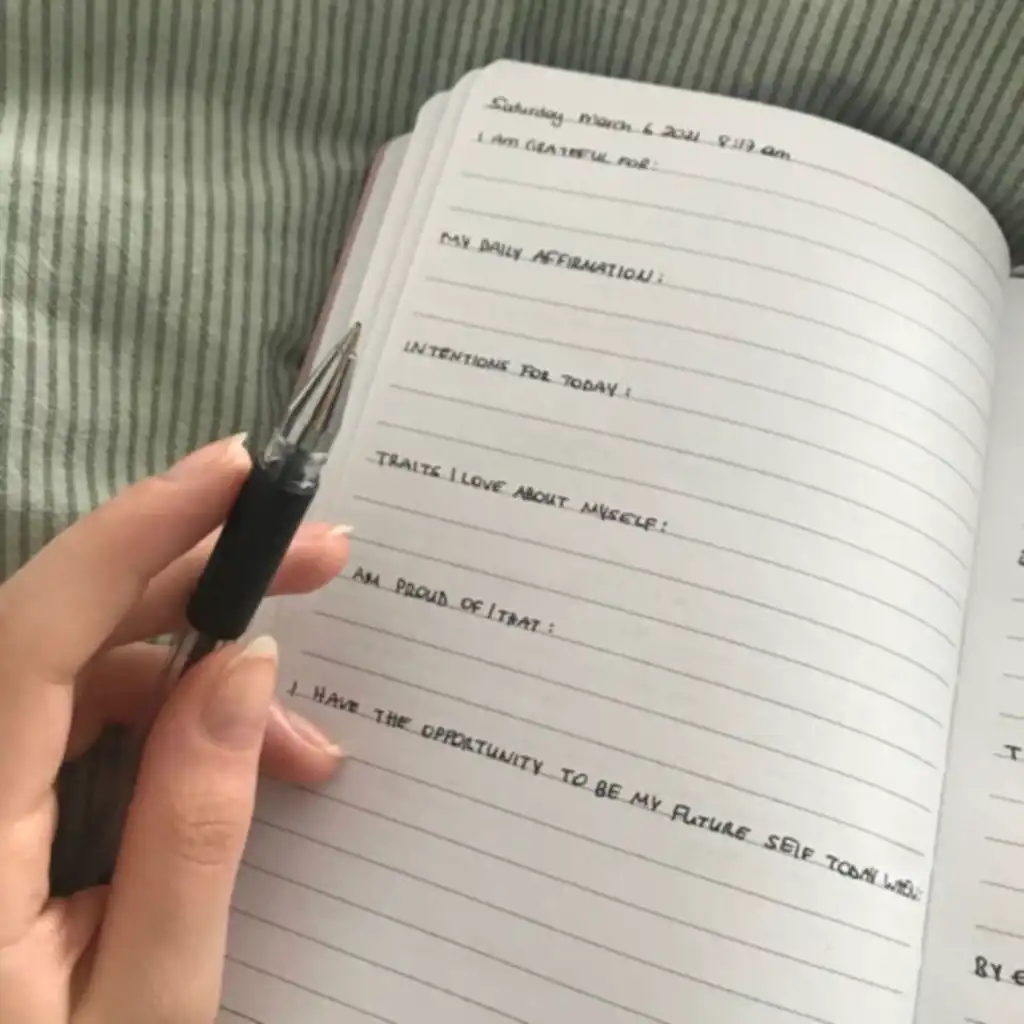 Saturday March 6 2021 8:17 am
I AM GRATEFUL FOR:
MY DAILY AFFIRMATION:
INTENTIONS FOR TODAY:
TRAITS I LOVE ABOUT MYSELF:
AM PROUD OF/THAT:
I HAVE THE OPPORTUNITY TO BE MY FUTURE SELF TODAY WHEN:
BY